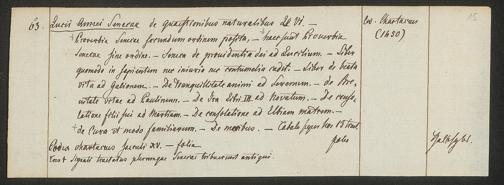 63. Lucii Annei Senecae de quaestionibus naturalibus LL VI. — Cod. Chartaceus 15
Proverbia Senecae secundum ordinem posita, — haec sunt Proverbia (1450)
Senecae sine ordine. — Seneca de providentia dei ad Lucilium. — Liber
quomodo in sapientem nec iniuria nec contumelia cadit. — Liber de beata
vita ad Galionem. — De tranquillitate animi ad Serenum. — de Bre-
vitate vitae ad Paulinum. — De Ira Libri III ad Novatum. — De conso-
latione filii sui ad Marciam. — De consolatione ad Elbiam matrem. —
de Cura et modo familiarum. — De moribus. —
Codex chartaceus saeculi XV. — folia
Tres signati tractatus plerumque Senecae tribuuntur antiqui.